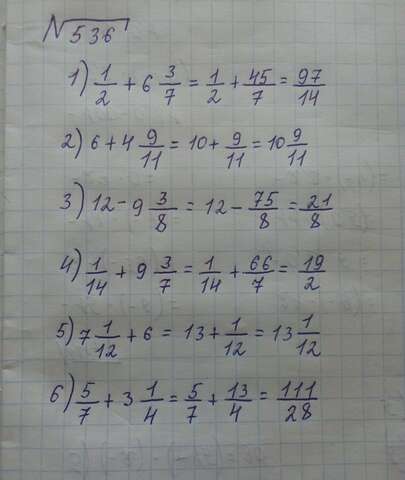 √536
1) 1/2 + 6 3/7 = 1/2 + 45/7 = 97/14
2) 6 + 4 9/11 = 10 + 9/11 = 10 9/11
3) 12 - 9 3/8 = 12 - 75/8 = 21/8
4) 1/14 + 9 3/7 = 1/14 + 66/7 = 19/2
5) 7 1/12 + 6 = 13 + 1/12 = 13 1/12
6) 5/7 + 3 1/4 = 5/7 + 13/4 = 111/28